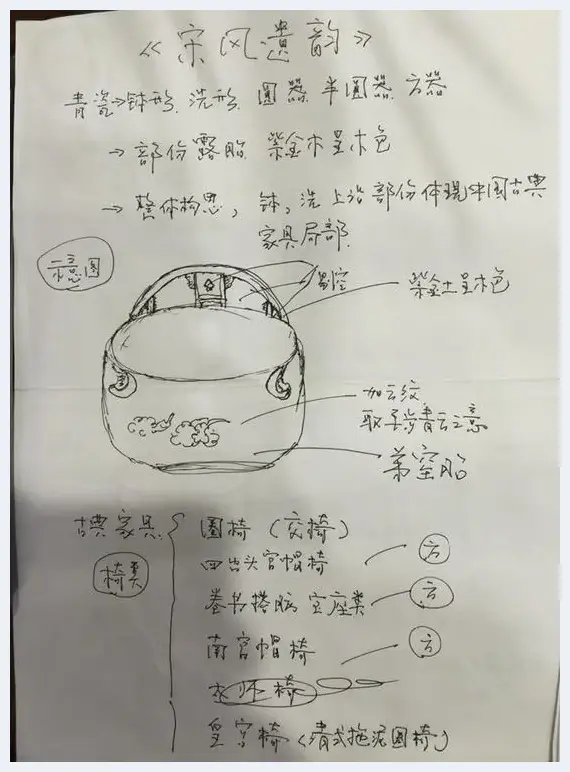 《宋风遗韵》
青瓷→钵形、洗形、圆器、半圆器、方器
→部份露胎、紫金木呈木色
→整体构思，钵，洗上沿部份体现中国古典
家具局部.
示意图
剔空
紫金土呈木色
加云纹
取平步青云之意
弟窑胎
古典家具
椅类
圈椅（交椅）
四出头官帽椅
方
卷书搭脑宝座类
方
南官帽椅
方
皇宫椅（清式拖泥圈椅）